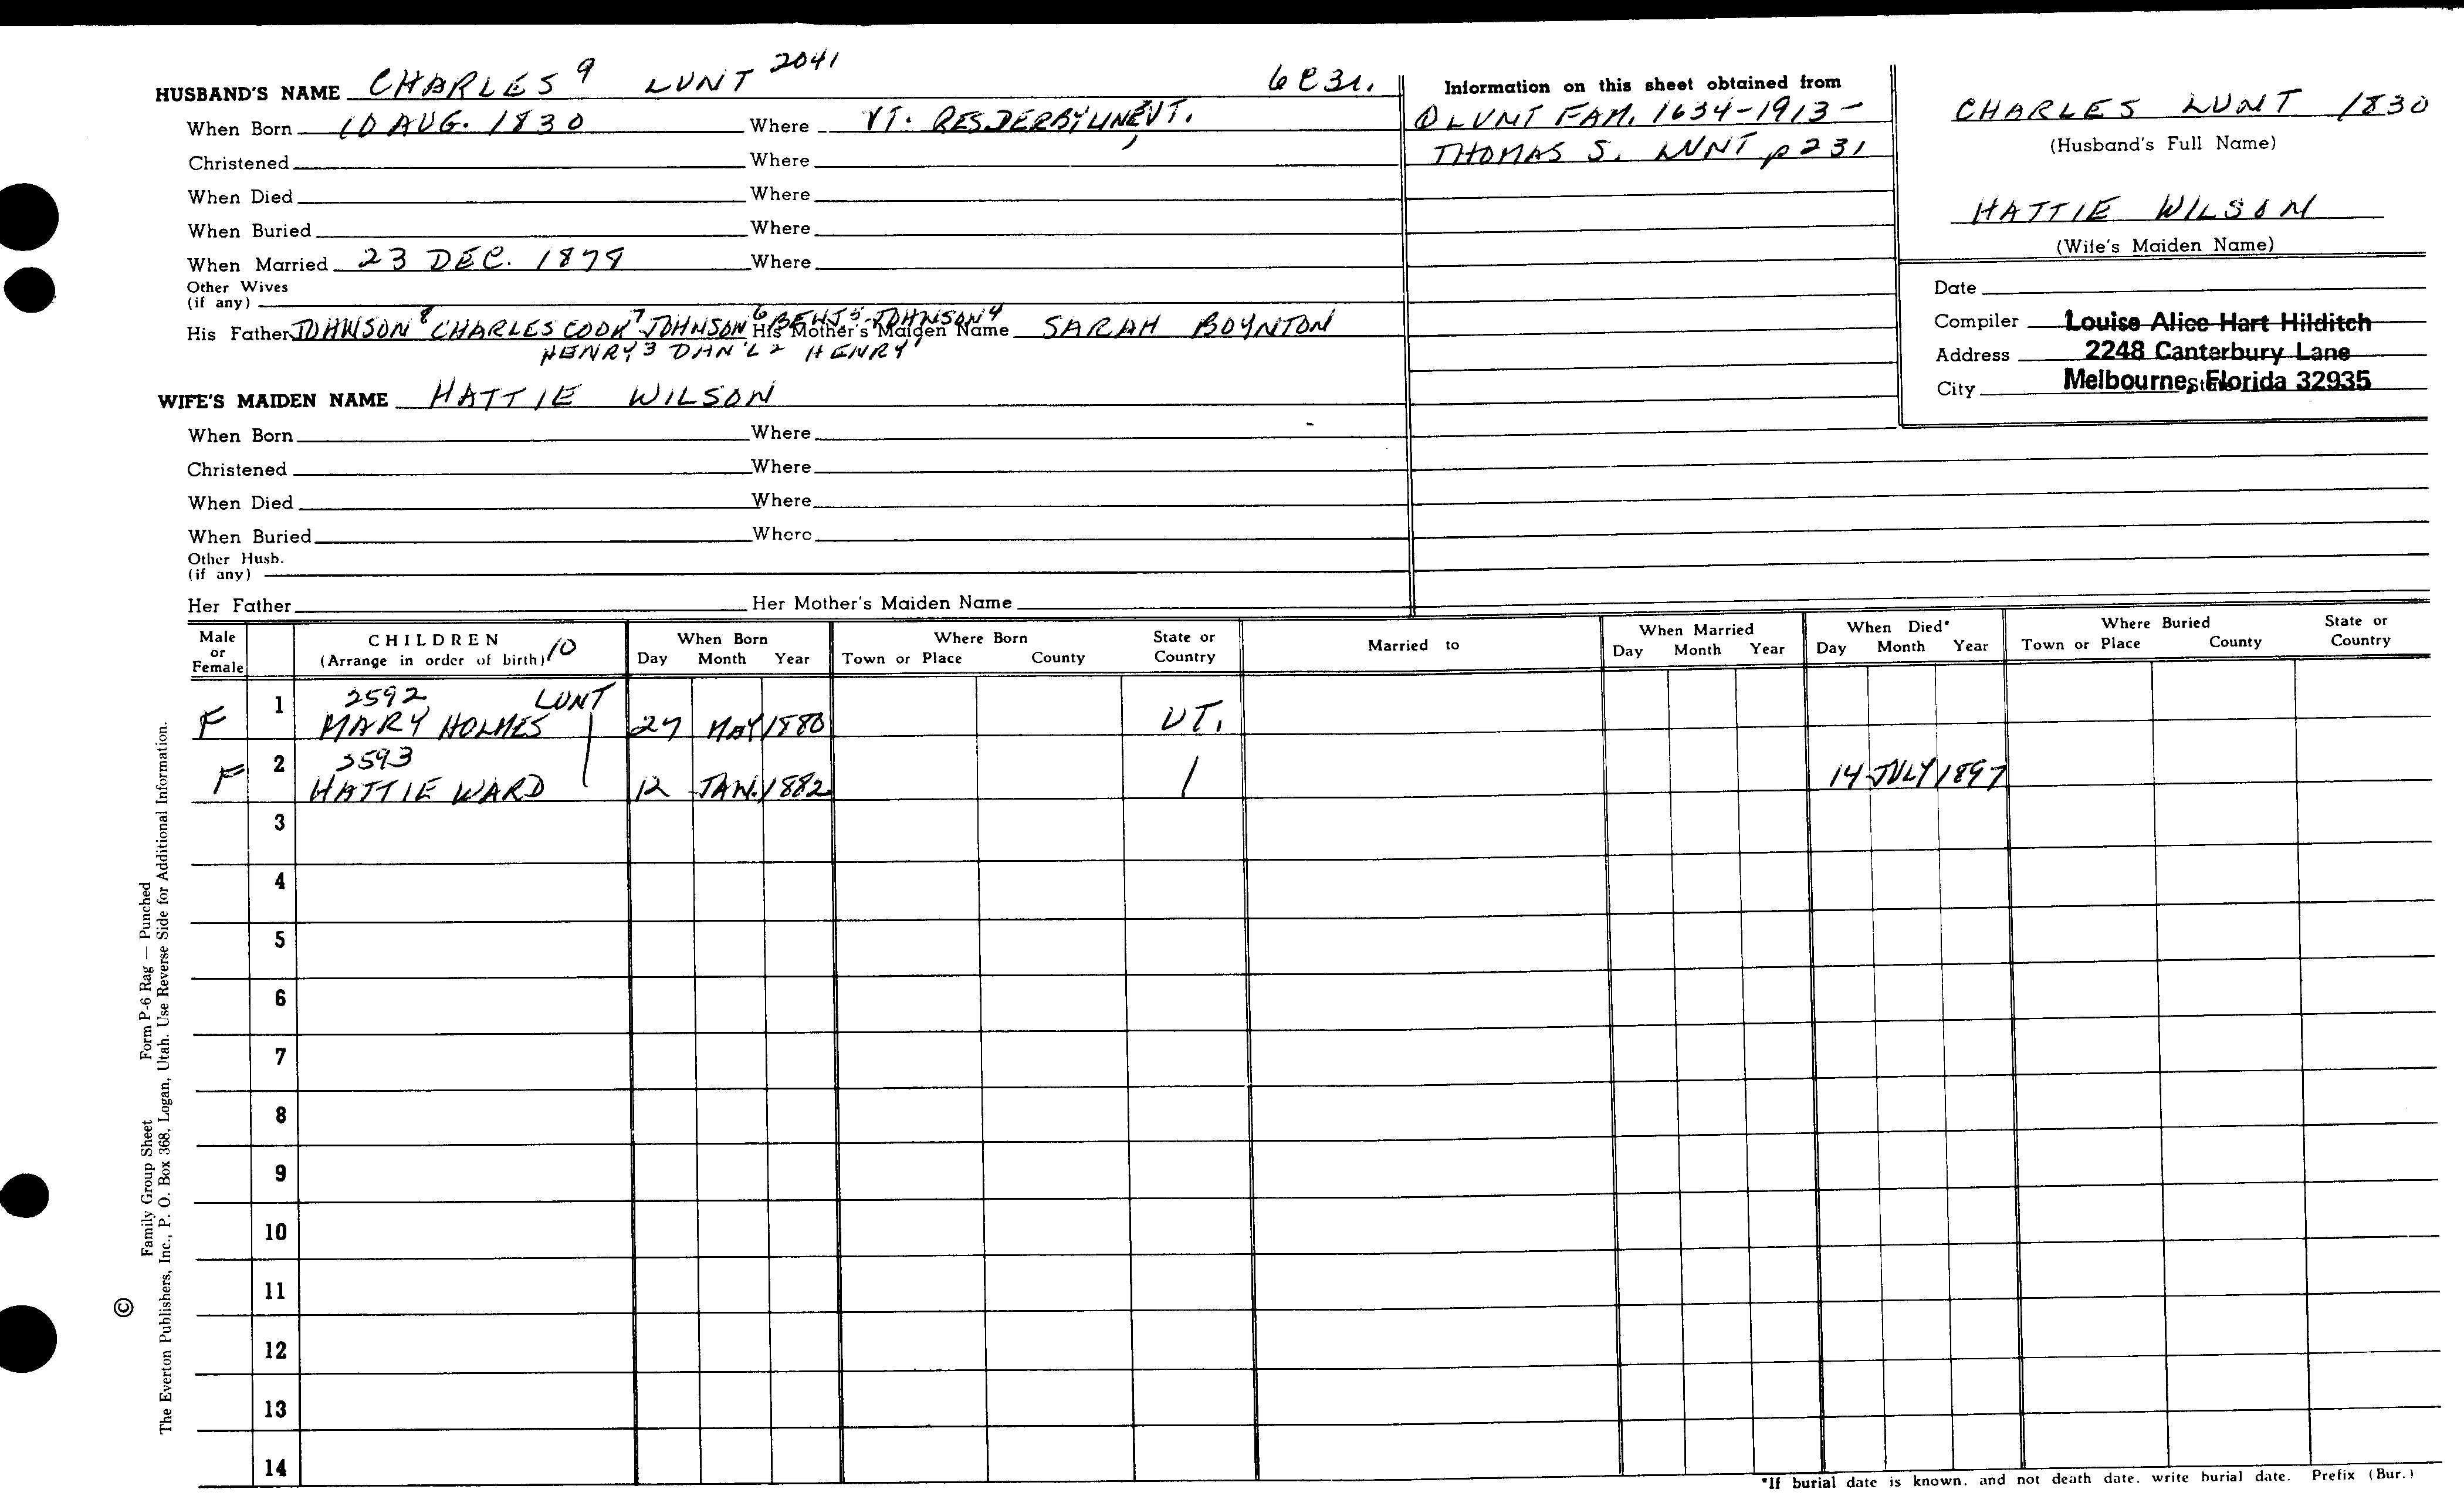 HUSBAND'S NAME CHARLES 9 LUNT 2041
When Born 10 AUG. 1830 Where VT. RES. DERBYLINE, VT.
Christened Where
When Died Where
When Buried Where
When Married 23 DEC. 1879 Where
Other Wives
(if any)
His Father JOHNSON 8 CHARLES COOK 7 JOHNSON 6 BENJ 5 JOHNSON 4 His Mother's Maiden Name SARAH BOYNTON
HENRY 3 DAN'L 2 HENRY 1
WIFE'S MAIDEN NAME HATTIE WILSON
When Born Where
Christened Where
When Died Where
When Buried Where
Other Husb.
(if any)
Her Father Her Mother's Maiden Name
Information on this sheet obtained from
LUNT FAM. 1634-1913-
THOMAS S. LUNT p 231
CHARLES LUNT 1830
(Husband's Full Name)
HATTIE WILSON
(Wife's Maiden Name)
Date
Compiler Louise Alice Hart Hilditch
Address 2248 Canterbury Lane
City Melbourne, Florida 32935
Male or Female CHILDREN 10 (Arrange in order of birth) When Born Day Month Year Where Born Town or Place County State or Country Married to When Married Day Month Year When Died* Day Month Year Where Buried Town or Place County State or Country
2592 LUNT
F 1 MARY HOLMES 27 MAY 1880 VT.
F 2 HATTIE WARD 12 JAN. 1882 14 JULY 1897
3
4
5
6
7
8
9
10
11
12
13
14
*If burial date is known, and not death date, write burial date. Prefix (Bur.)
© Family Group Sheet Form P-6 Rag — Punched
The Everton Publishers, Inc., P. O. Box 368, Logan, Utah. Use Reverse Side for Additional Information.